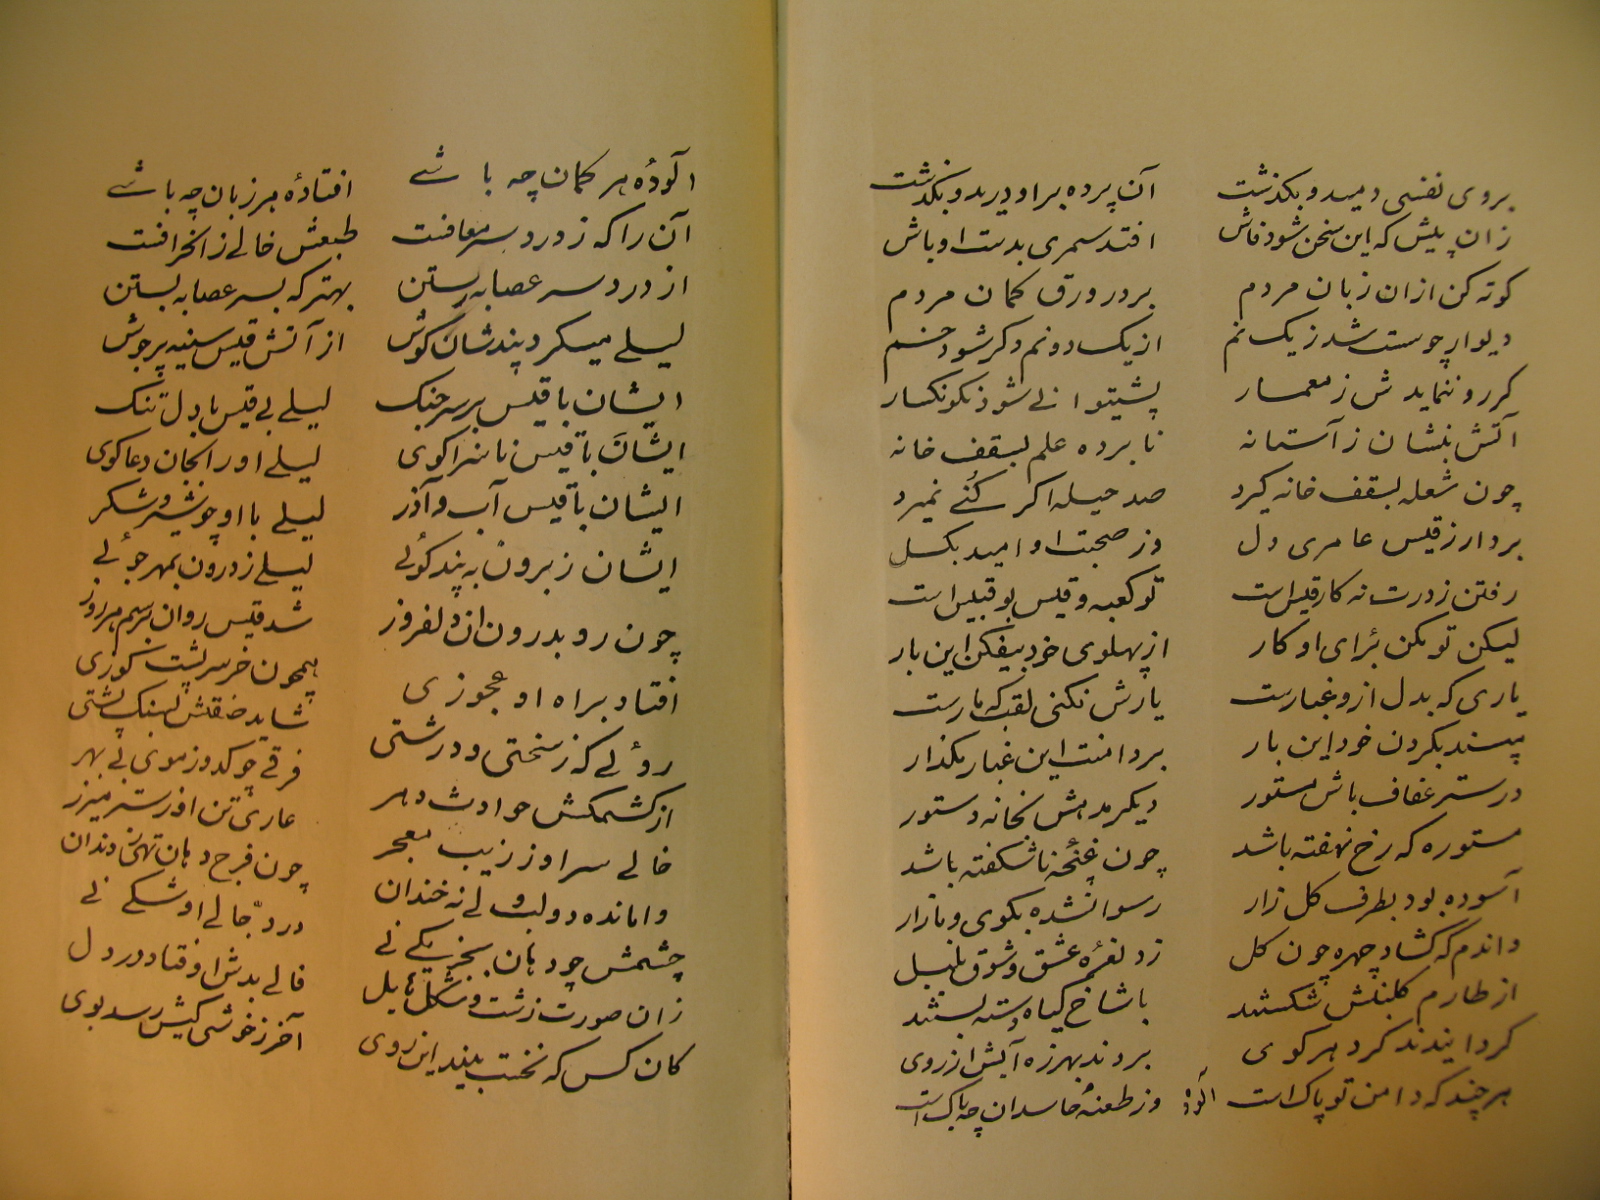 بروی نفسی دمید و بگذشت آن پرده براو درید و بگذشت
زان پیش که این سخن شود فاش افتد سمری بدست اوباش
کوته کن ازان زبان مردم بردر ورق گمان مردم
دیوار چو سست شد ز یک نم از یک دو نم دگر شود خم
گر رو ننماید ش ز معمار
آتش بنشان ز آستانه نا برده علم بسقف خانه
چون شعله بسقف خانه گیرد صد حیله اگر کنے نمیرد
بردار ز قیس عامری دل وز صحبت او امید بگسل
رفتن ز درت نه کار قیس است تو کعبه و قیس بو قبیس است
لیکن تو مکن برای او کار از پهلوی خود بیفکن این بار
یاری که بدل ازو غبارست یارش نکنی لقب که بارست
مپسند بگردن خود این بار بر دامنت این غبار مگذار
در ستر عفاف باش مستور دیگر مدهش بخانه دستور
مستوره که رخ نهفته باشد چون غنچهٔ ناشکفته باشد
آسوده بود بطرف گلزار رسوا نشده بکوی و بازار
واندم که گشاد چهره چون گل زد نعرهٔ عشق و شوق بلبل
از طارم گلبنش شکستند با شاخ گیاه دسته بستند
گردانیدند گرد هر کوی بردند بهرزه آبش از روی
هر چند که دامن تو پاک است وز طعنهٔ حاسدان چه باک است
آلودهٔ
آلودهٔ هر گمان چه باشے افتادهٔ هر زبان چه باشے
آن را که ز درد سر معافست طبعش خالے ز انحرافست
از درد سر عصابه بستن بهتر که بسر عصابه بستن
لیلے میکرد پندشان گوش از آتش قیس سینه پر جوش
ایشان با قیس بر سر جنگ لیلے بی قیس با دل تنگ
ایشان با قیس ناسزا گوی لیلے او را بجان دعا گوی
ایشان با قیس آب و آذر لیلے با او چو شیر و شکر
ایشان ز برون به پند گوئے لیلے ز درون بمهر جوئے
چون رو بدرون ان دلفروز شد قیس روان برسم هر روز
افتاد براه او عجوزی همچون خر سر پشت کوزی
روئے که ز سختی و درشتی شاید صفتش بسنگ پشتی
از کشمکش حوادث دهر فرقے چو کدو ز موی بی بهر
خالے سر او ز زیب معجر عاری تن او ز ستر میزر
وامانده دو لب ولے نه خندان چون فرج دهان تهی ز دندان
چشمش چو دهان بجز یکے نے در دجالے او شکے نے
زان صورت زشت و شکل هایل فالے بدش اوفتاد در دل
کان کس که نخست بیند این روی آخر ز خوشی کیش رسد بوی